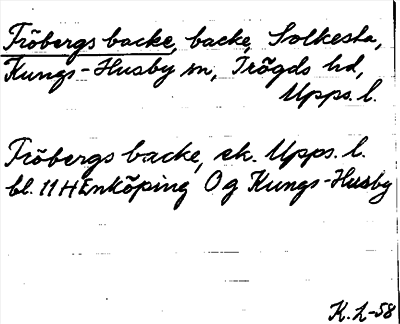 Fröbergs backe, backe, Solkesta,
Kungs-Husby sn, Trögds hd,
Upps. l.
Fröbergs backe, ek. Upps. l.
bl. 11 H Enköping O g Kungs-Husby
K. L-58